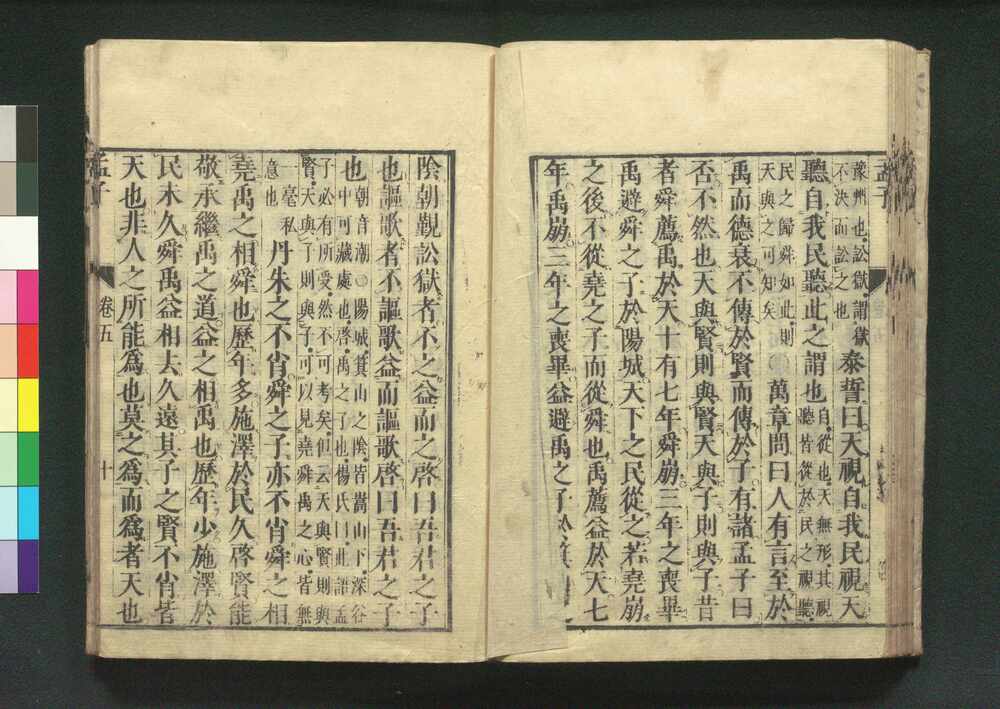 孟子
豫州也訟獄謂獄
不決而訟之也
泰誓曰天視自我民視天
聽自我民聽此之謂也
自從也天無形其視
聽皆從於民之視聽
民之歸舜如此則
天與之可知矣
○萬章問曰人有言至於
禹而德衰不傳於賢而傳於子有諸孟子曰
否不然也天與賢則與賢天與子則與子昔
者舜薦禹於天十有七年舜崩三年之喪畢
禹避舜之子於陽城天下之民從之若堯崩
之後不從堯之子而從舜也禹薦益於天七
年禹崩三年之喪畢益避禹之子於箕
陰朝覲訟獄者不之益而之啓曰吾君之子
也謳歌者不謳歌益而謳歌啓曰吾君之子
也
朝音潮○陽城箕山之陰皆嵩山下深谷
中可藏處也啓禹之子也楊氏曰此語孟
子必有所受然不可考矣但云天與賢則與
賢天與子則與子可以見堯舜禹之心皆無
一毫私
意也
丹朱之不肖舜之子亦不肖舜之相
堯禹之相舜也歷年多施澤於民久啓賢能
敬承繼禹之道益之相禹也歷年少施澤於
民未久舜禹益相去久遠其子之賢不肖皆
天也非人之所能爲也莫之爲而爲者天也
孟子 卷五 十